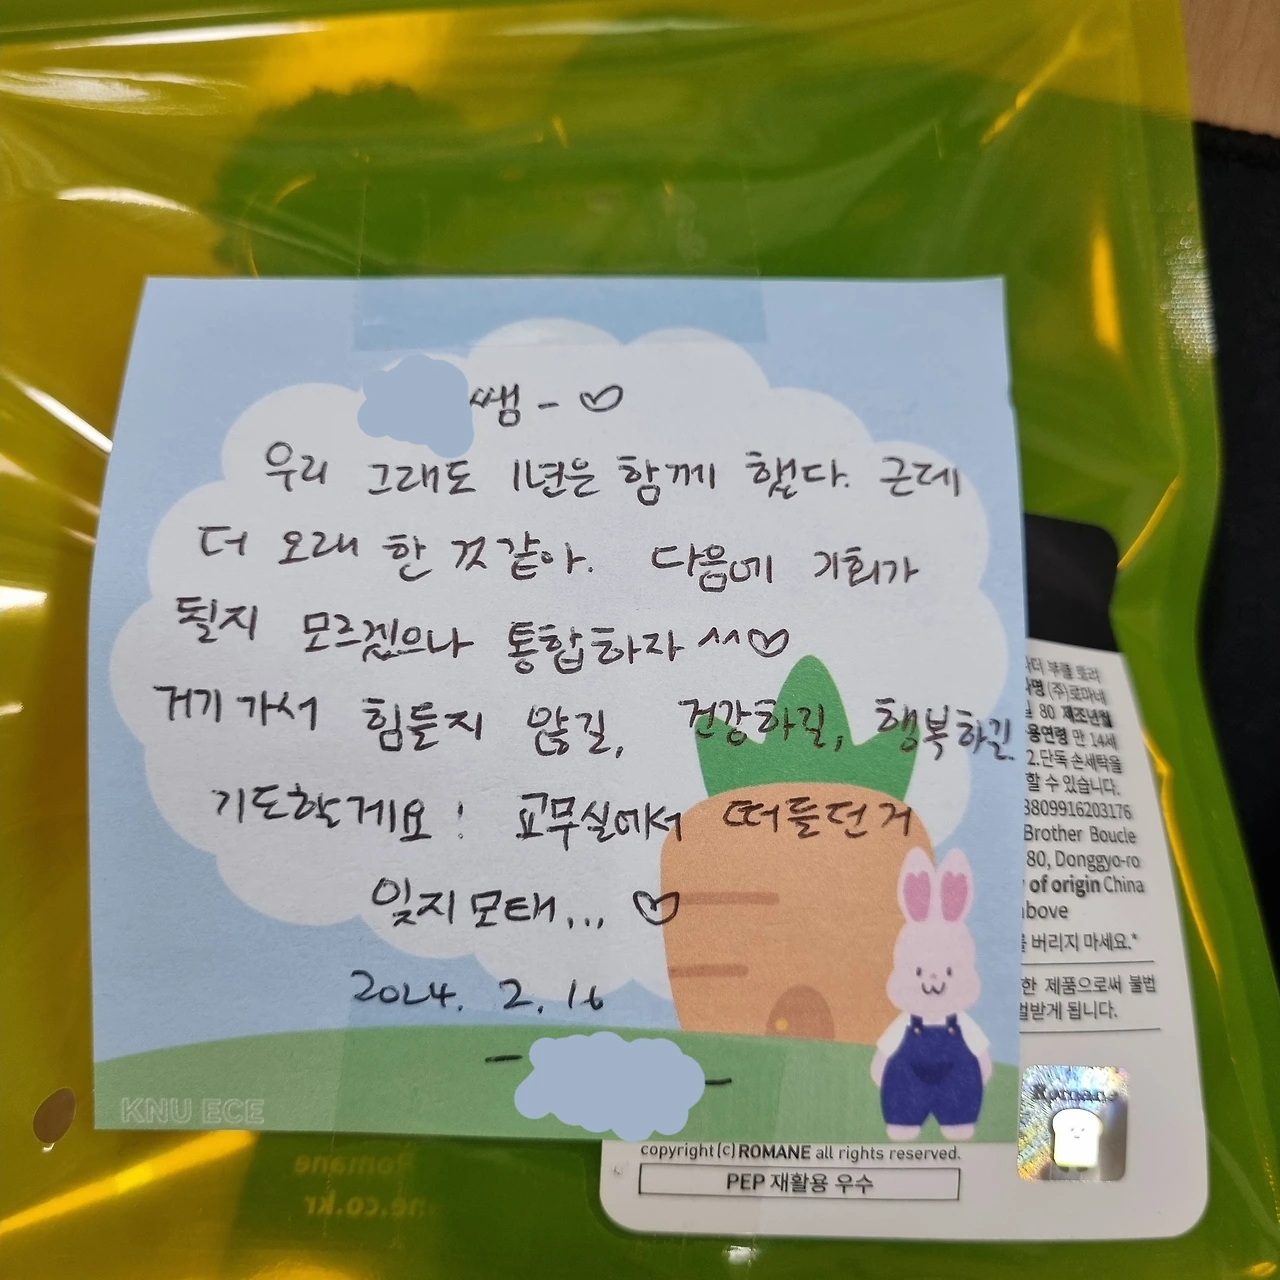 쌤 - ♡
우리 그래도 1년은 함께 했다. 근데
더 오래 한 것 같아. 다음에 기회가
될지 모르겠으나 통합하자 ^^♡
거기 가서 힘들지 않길, 건강하길, 행복하길
기도할게요! 교무실에서 떠들던거
잊지모태... ♡
2024. 2. 16
KNU ECE
더 부클 토리
명 (주)로마네
80 제조년월
용연령 만 14세
2.단독 손세탁을
할 수 있습니다.
8809916203176
Brother Boucle
80, Donggyo-ro
of origin China
above
버리지 마세요.*
한 제품으로써 불법
벌받게 됩니다.
Romane
copyright (c) ROMANE all rights reserved.
PEP 재활용 우수
Romane
ne.co.kr